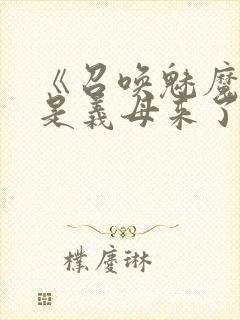 《召唤魅魔
是義母来了
樸慶琳